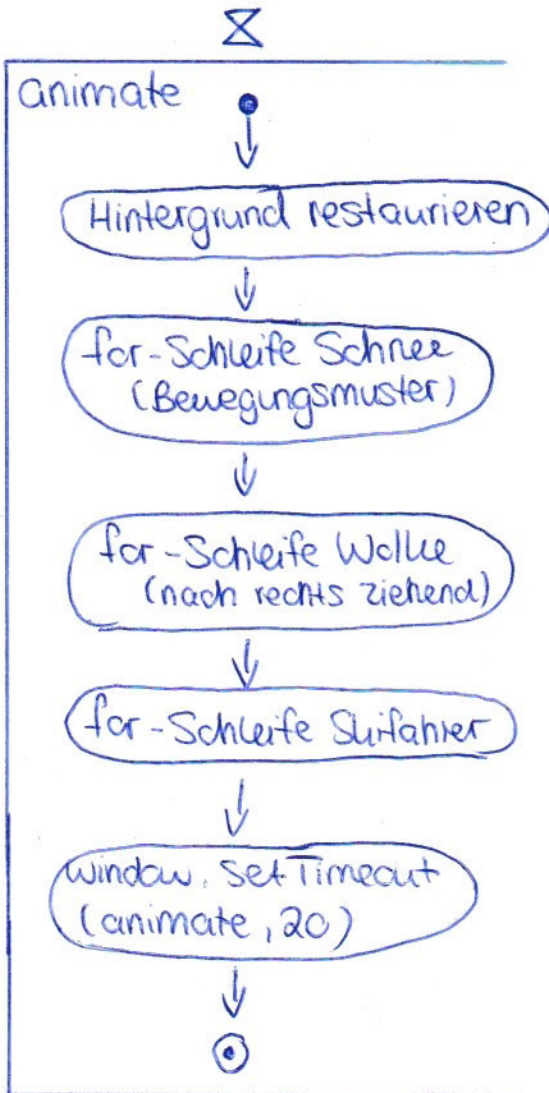 animate
Hintergrund restaurieren
for-Schleife Schnee
(Bewegungsmuster)
for-Schleife Wolke
(nach rechts ziehend)
for-Schleife Skifahrer
window.setTimeout
(animate, 20)